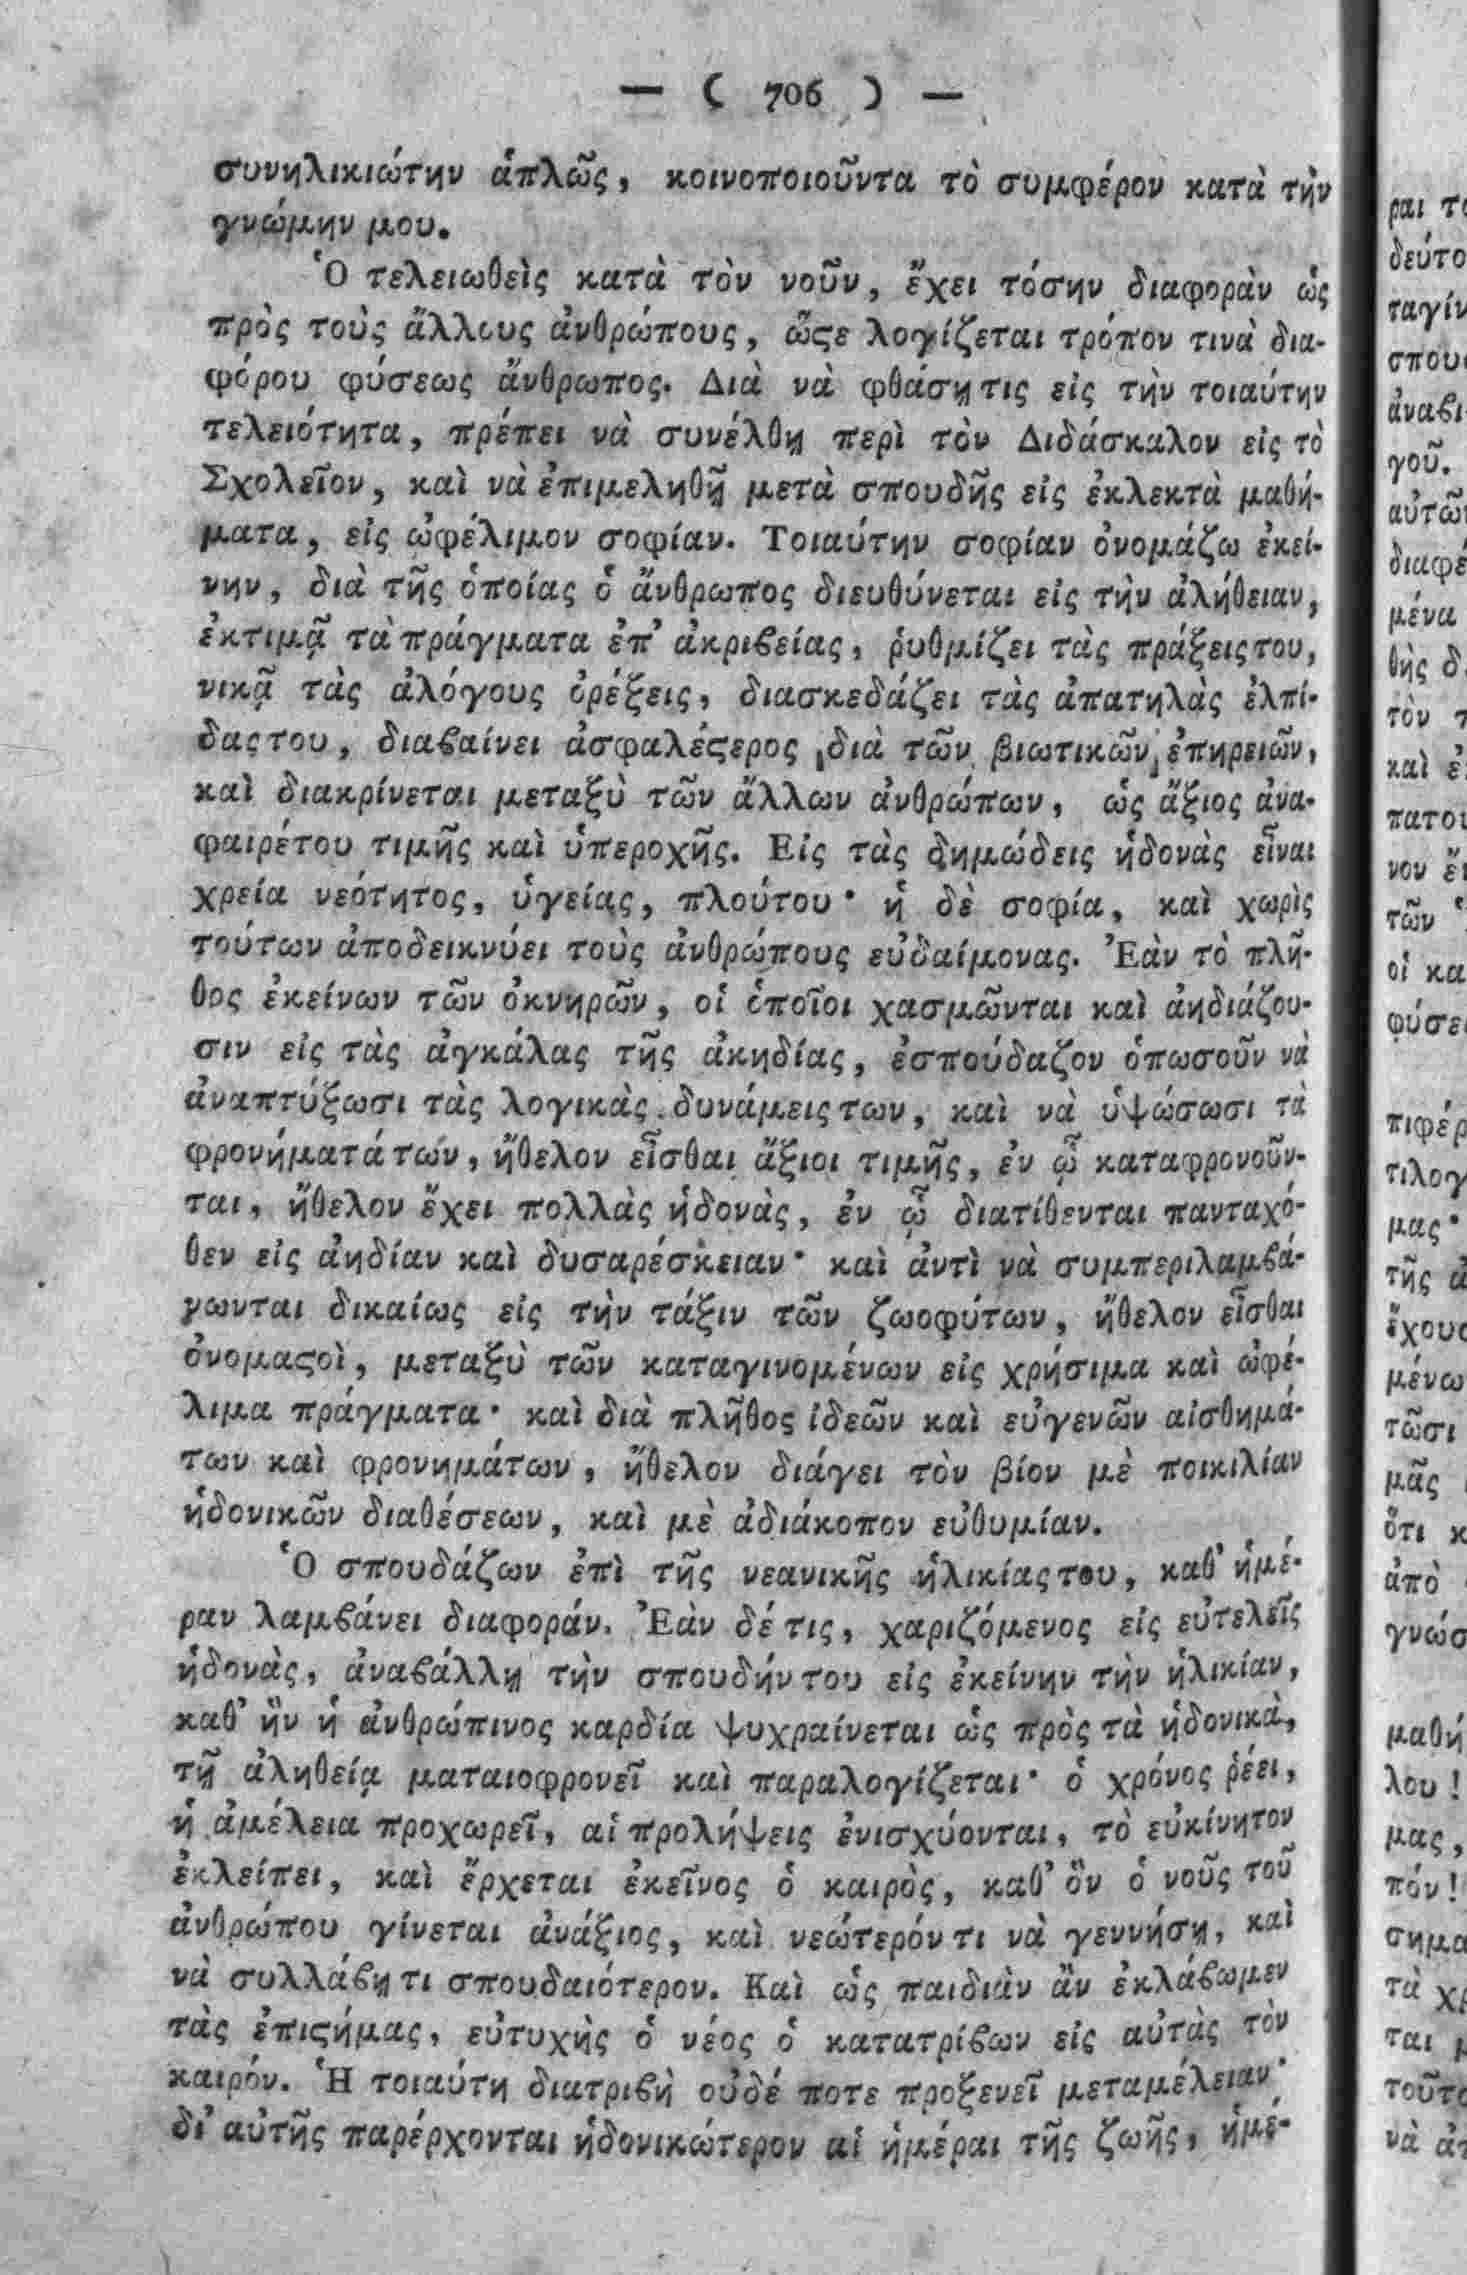 — ( 706 ) —
συνηλικιώτην ἁπλῶς, κοινοποιοῦντα τὸ συμφέρον κατὰ τὴν
γνώμην μου.
Ὁ τελειωθεὶς κατὰ τὸν νοῦν, ἔχει τόσην διαφορὰν ὡς
πρὸς τοὺς ἄλλους ἀνθρώπους, ὥςε λογίζεται τρόπον τινὰ δια-
φόρου φύσεως ἄνθρωπος. Διὰ νὰ φθάσῃ τις εἰς τὴν τοιαύτην
τελειότητα, πρέπει νὰ συνέλθῃ περὶ τὸν Διδάσκαλον εἰς τὸ
Σχολεῖον, καὶ νὰ ἐπιμεληθῇ μετὰ σπουδῆς εἰς ἐκλεκτὰ μαθή-
ματα, εἰς ὠφέλιμον σοφίαν. Τοιαύτην σοφίαν ὀνομάζω ἐκεί-
νην, διὰ τῆς ὁποίας ὁ ἄνθρωπος διευθύνεται εἰς τὴν ἀλήθειαν,
ἐκτιμᾷ τὰ πράγματα ἐπ' ἀκριβείας, ῥυθμίζει τὰς πράξειςτου,
νικᾷ τὰς ἀλόγους ὀρέξεις, διασκεδάζει τὰς ἀπατηλὰς ἐλπί-
δαςτου, διαβαίνει ἀσφαλέςερος διὰ τῶν βιωτικῶν ἐπηρειῶν,
καὶ διακρίνεται μεταξὺ τῶν ἄλλων ἀνθρώπων, ὡς ἄξιος ἀνα-
φαιρέτου τιμῆς καὶ ὑπεροχῆς. Εἰς τὰς δημώδεις ἡδονὰς εἶναι
χρεία νεότητος, ὑγείας, πλούτου· ἡ δὲ σοφία, καὶ χωρὶς
τούτων ἀποδεικνύει τοὺς ἀνθρώπους εὐδαίμονας. Ἐὰν τὸ πλῆ-
θος ἐκείνων τῶν ὀκνηρῶν, οἱ ὁποῖοι χασμῶνται καὶ ἀηδιάζου-
σιν εἰς τὰς ἀγκάλας τῆς ἀκηδίας, ἐσπούδαζον ὁπωσοῦν νὰ
ἀναπτύξωσι τὰς λογικὰς δυνάμεις των, καὶ νὰ ὑψώσωσι τὰ
φρονήματάτων, ἤθελον εἶσθαι ἄξιοι τιμῆς, ἐν ᾧ καταφρονοῦν-
ται, ἤθελον ἔχει πολλὰς ἡδονὰς, ἐν ᾧ διατίθενται πανταχό-
θεν εἰς ἀηδίαν καὶ δυσαρέσκειαν· καὶ ἀντὶ νὰ συμπεριλαμβά-
νωνται δικαίως εἰς τὴν τάξιν τῶν ζωοφύτων, ἤθελον εἶσθαι
ὀνομαςοὶ, μεταξὺ τῶν καταγινομένων εἰς χρήσιμα καὶ ὠφέ-
λιμα πράγματα· καὶ διὰ πλῆθος ἰδεῶν καὶ εὐγενῶν αἰσθημά-
των καὶ φρονημάτων, ἤθελον διάγει τὸν βίον μὲ ποικιλίαν
ἡδονικῶν διαθέσεων, καὶ μὲ ἀδιάκοπον εὐθυμίαν.
Ὁ σπουδάζων ἐπὶ τῆς νεανικῆς ἡλικίας του, καθ' ἡμέ-
ραν λαμβάνει διαφοράν. Ἐὰν δέ τις, χαριζόμενος εἰς εὐτελεῖς
ἡδονὰς, ἀναβάλλῃ τὴν σπουδήν του εἰς ἐκείνην τὴν ἡλικίαν,
καθ' ἣν ἡ ἀνθρώπινος καρδία ψυχραίνεται ὡς πρὸς τὰ ἡδονικὰ,
τῇ ἀληθείᾳ ματαιοφρονεῖ καὶ παραλογίζεται· ὁ χρόνος ῥέει,
ἡ ἀμέλεια προχωρεῖ, αἱ προλήψεις ἐνισχύονται, τὸ εὐκίνητον
ἐκλείπει, καὶ ἔρχεται ἐκεῖνος ὁ καιρὸς, καθ' ὃν ὁ νοῦς τοῦ
ἀνθρώπου γίνεται ἀνάξιος, καὶ νεώτερόν τι νὰ γεννήσῃ, καὶ
νὰ συλλάβῃ τι σπουδαιότερον. Καὶ ὡς παιδιὰν ἂν ἐκλάβωμεν
τὰς ἐπιςήμας, εὐτυχὴς ὁ νέος ὁ κατατρίβων εἰς αὐτὰς τὸν
καιρόν. Ἡ τοιαύτη διατριβὴ οὐδέ ποτε προξενεῖ μεταμέλειαν·
δι' αὐτῆς παρέρχονται ἡδονικώτερον αἱ ἡμέραι τῆς ζωῆς, ἡμέ-